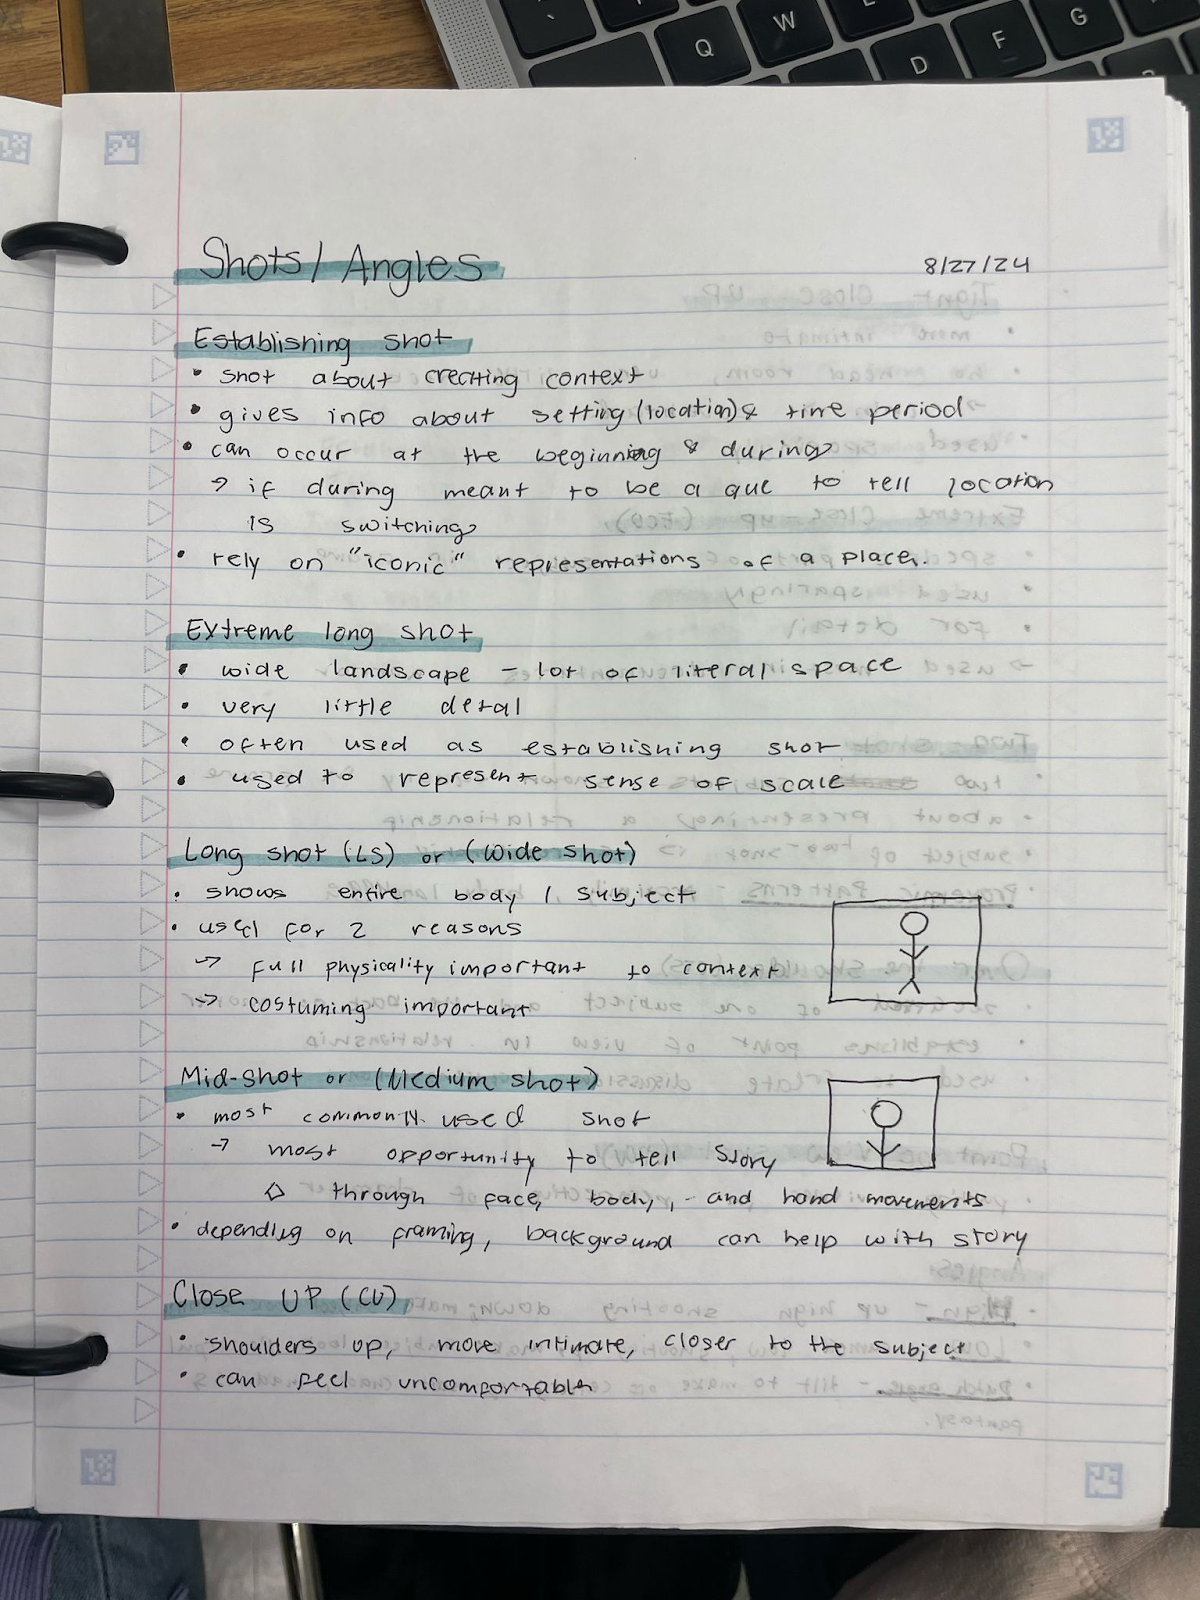 Shots / Angles
8/27/24
Establishing shot
• shot about creating context
• gives info about setting (location) & time period
• can occur at the beginning & during
→ if during meant to be a que to tell location
is switching
• rely on "iconic" representations of a place.
Extreme long shot
• wide landscape - lot of literal space
• very little detal
• often used as establishing shot
• used to represent sense of scale
Long shot (LS) or (Wide shot)
• shows entire body / subject
• used for 2 reasons
→ full physicality important to context
→ costuming important
Mid-shot or (Medium shot)
• most commonly used shot
→ most opportunity to tell story
through face, body, and hand movements
• depending on framing, background can help with story
Close UP (CU)
• shoulders up, more intimate, closer to the subject
• can feel uncomfortable
Q W F G D